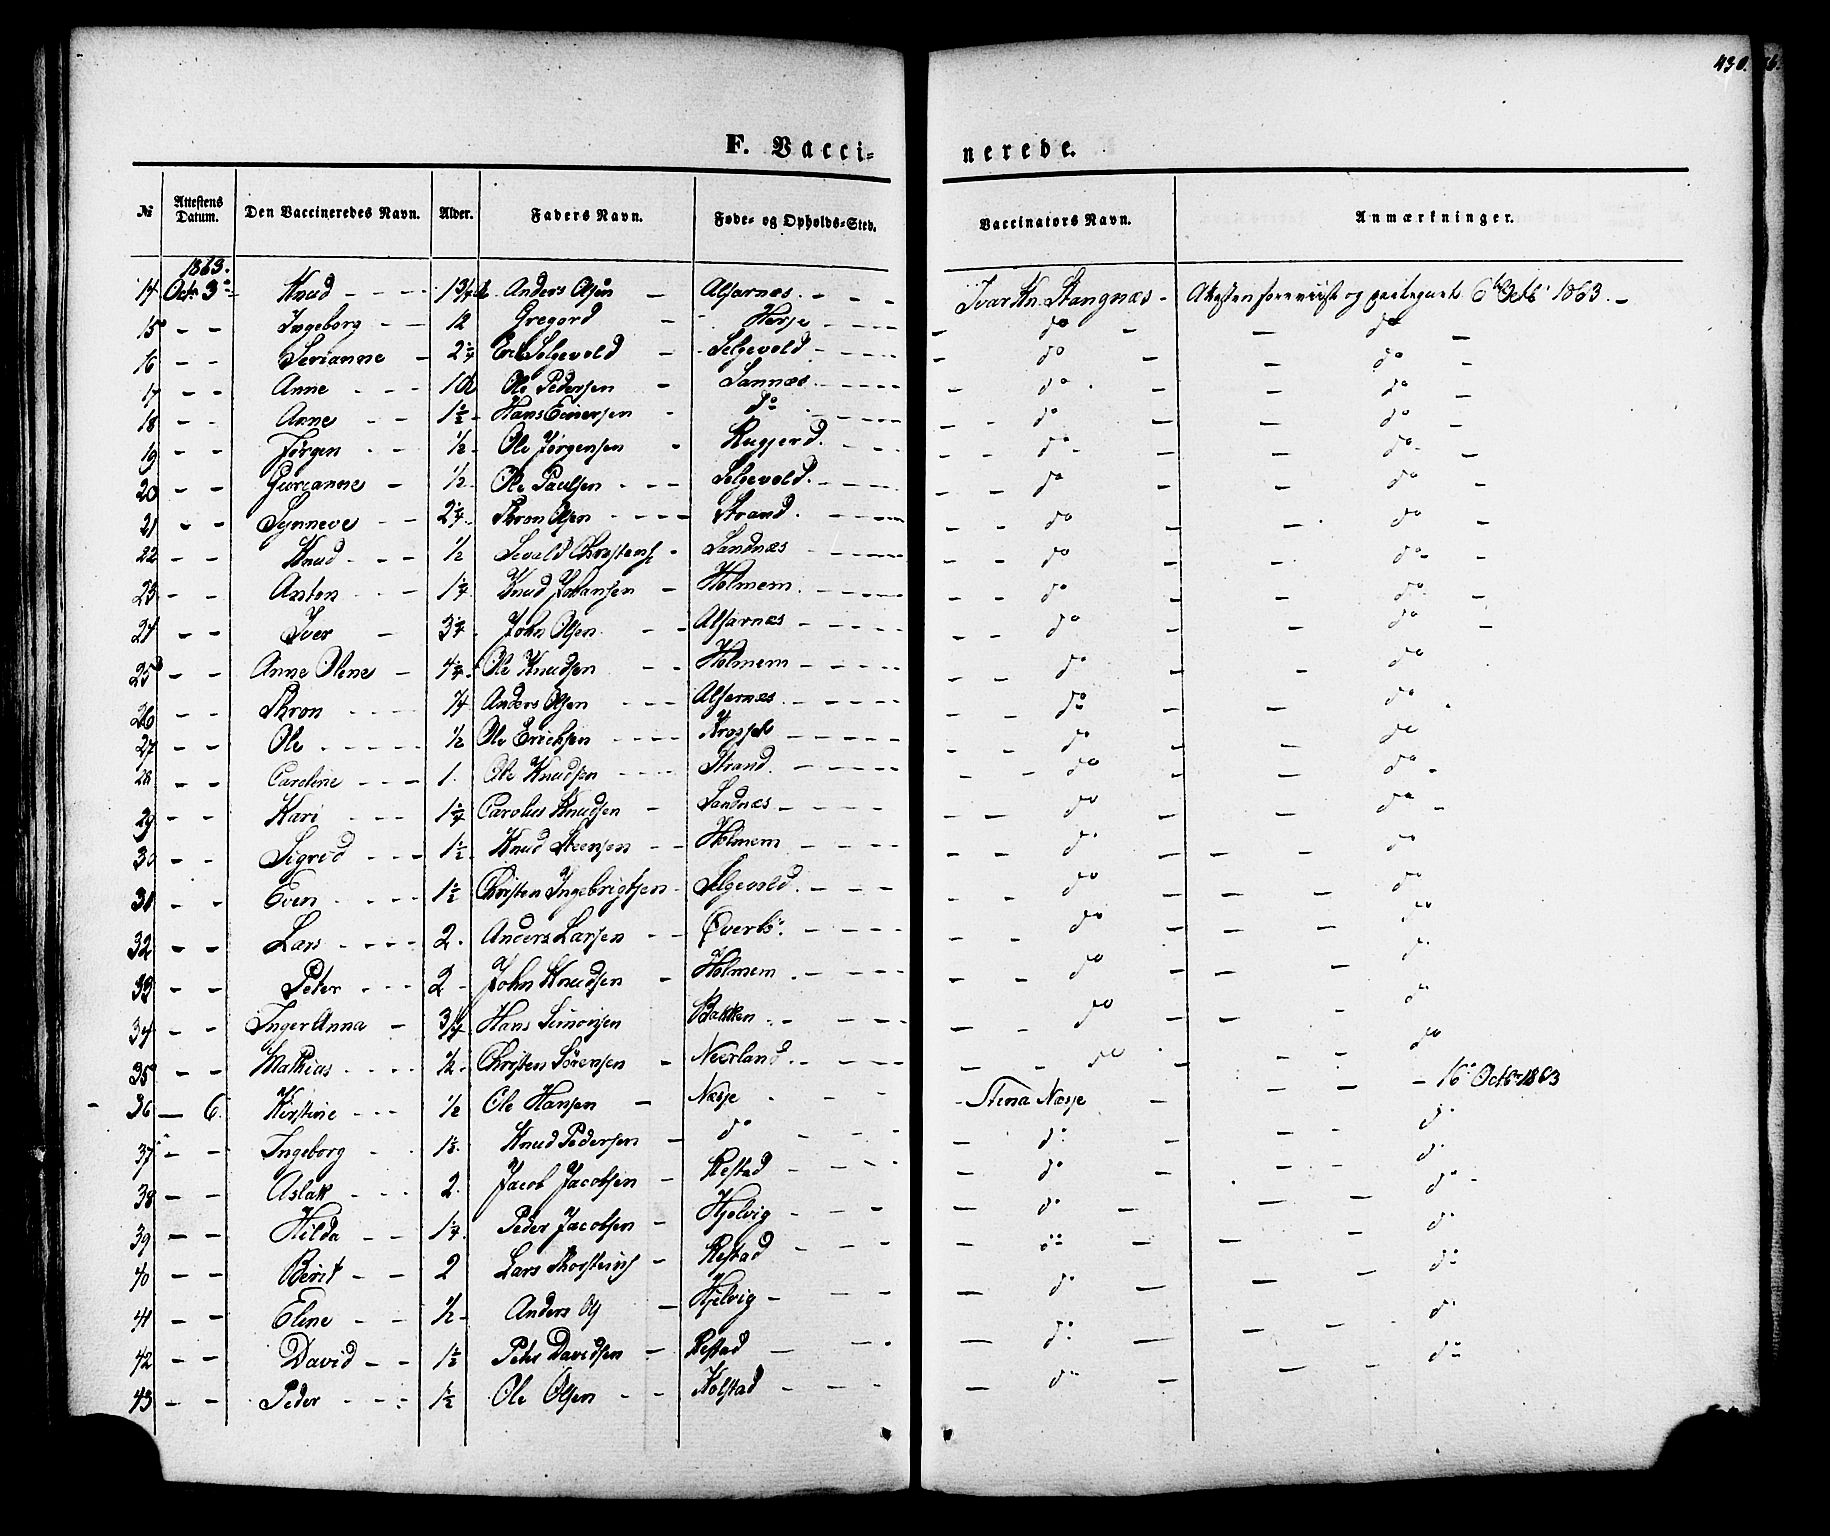 430.
F. Vacci- nerede.
№ Attestens Datum. Den Vaccineredes Navn. Alder. Faders Navn. Føde- og Opholds-Sted. Vaccinators Navn. Anmærkninger.
1863.
14 Octr 3 Knud - - - Anders Olsen - Alfarnæs. - - Ivar Kn. Stangnæs - Attesten foreviist og paategnet 6 Octb 1863. -
15 - - Ingeborg - - 12 Gregord - Herje - - - do - - do -
16 - - Serianne - 2 1/4 Erik Selgevold - Selgevold - - - do - - do -
17 - - Anne - - - Ole Pedersen - Sannæs - - - do - - do -
18 - - Anne - - 1 1/2 Hans Einersen - do - - - do - - do -
19 - - Jørgen - - 1/2 Ole Jørgensen - Rugjerd. - - - do - - do -
20 - - Gurianne - 1/2 Ole Paulsen - - - Selgevold. - - - do - - do -
21 - - Synneve - - 2 1/4 Thron Olsen - - - Strand. - - - do - - do -
22 - - Knud - - - 1/2 Sevald Christens - Sandnæs - - - do - - do -
23 - - Anton - - - 1 1/4 Knud Johansen - Holmem. - - - do - - do -
24 - - Iver - 3 1/4 John Olsen. - - Alfarnæs - - - do - - do -
25 - - Anne Oline - 4 1/4 Ole Knudsen - - Holmem - - - do - - do
26 - - Thron - - - 1/4 Anders Olsen - - - Alfarnæs - - - do - - do
27 - - Ole - - - 1/2 Ole Ericksen - - - - - - do - - do
28 - - Caroline - - - 1. Ole Knudsen - - - Strand. - - - do - - do
29 - - Kari - - - 1 1/4 Carolus Knudsen - Sandnæs - - - do - - do -
30 - - Sigrid - - - 1 1/2 Knud Steensen - - Holmem - - - do - - do
31 - - Even - - - 1 1/2 Christen Ingebrigtsen - Selgevold. - - - do - - do
32 - - Lars - - - 2 - Anders Larsen - - Øverbø. - - - do - - do
33 - - Peter - - - 2 - John Knudsen - Holmem - - - do - - do
34 - - Inger Anna - 3/4 Hans Simonsen Bakken - - - do - - do
35 - - Mathias - - - 1/2 Christen Sørensen - Neerland. - - - do - - do
36 - 6. Kirstine - - - 1/2 Ole Hansen - Næsje - - - Stina Næsje - - - 16 Octbr 1863
37 - - Ingeborg - - Knud Pedersen - do - - - do - - do
38 - - Aslak - - - 2. Jacob Jacobsen - Restad - - - do - - do
39 - - Hilda - - 1 1/4 Peder Jacobsen - Hjelvig - - - do - - do -
40 - - Berit - - 2 Lars Thorsteins - Restad - - - do - - do
41 - - Eline - - 1/2 Anders Ols - Hjelvig - - - do - - do
42 - - David - - 1 1/2 Peter Davidsen - Restad - - - do - - do
43 - - Peder - - - 1 1/2 Ole Olsen - - Kolstad - - - do - - do